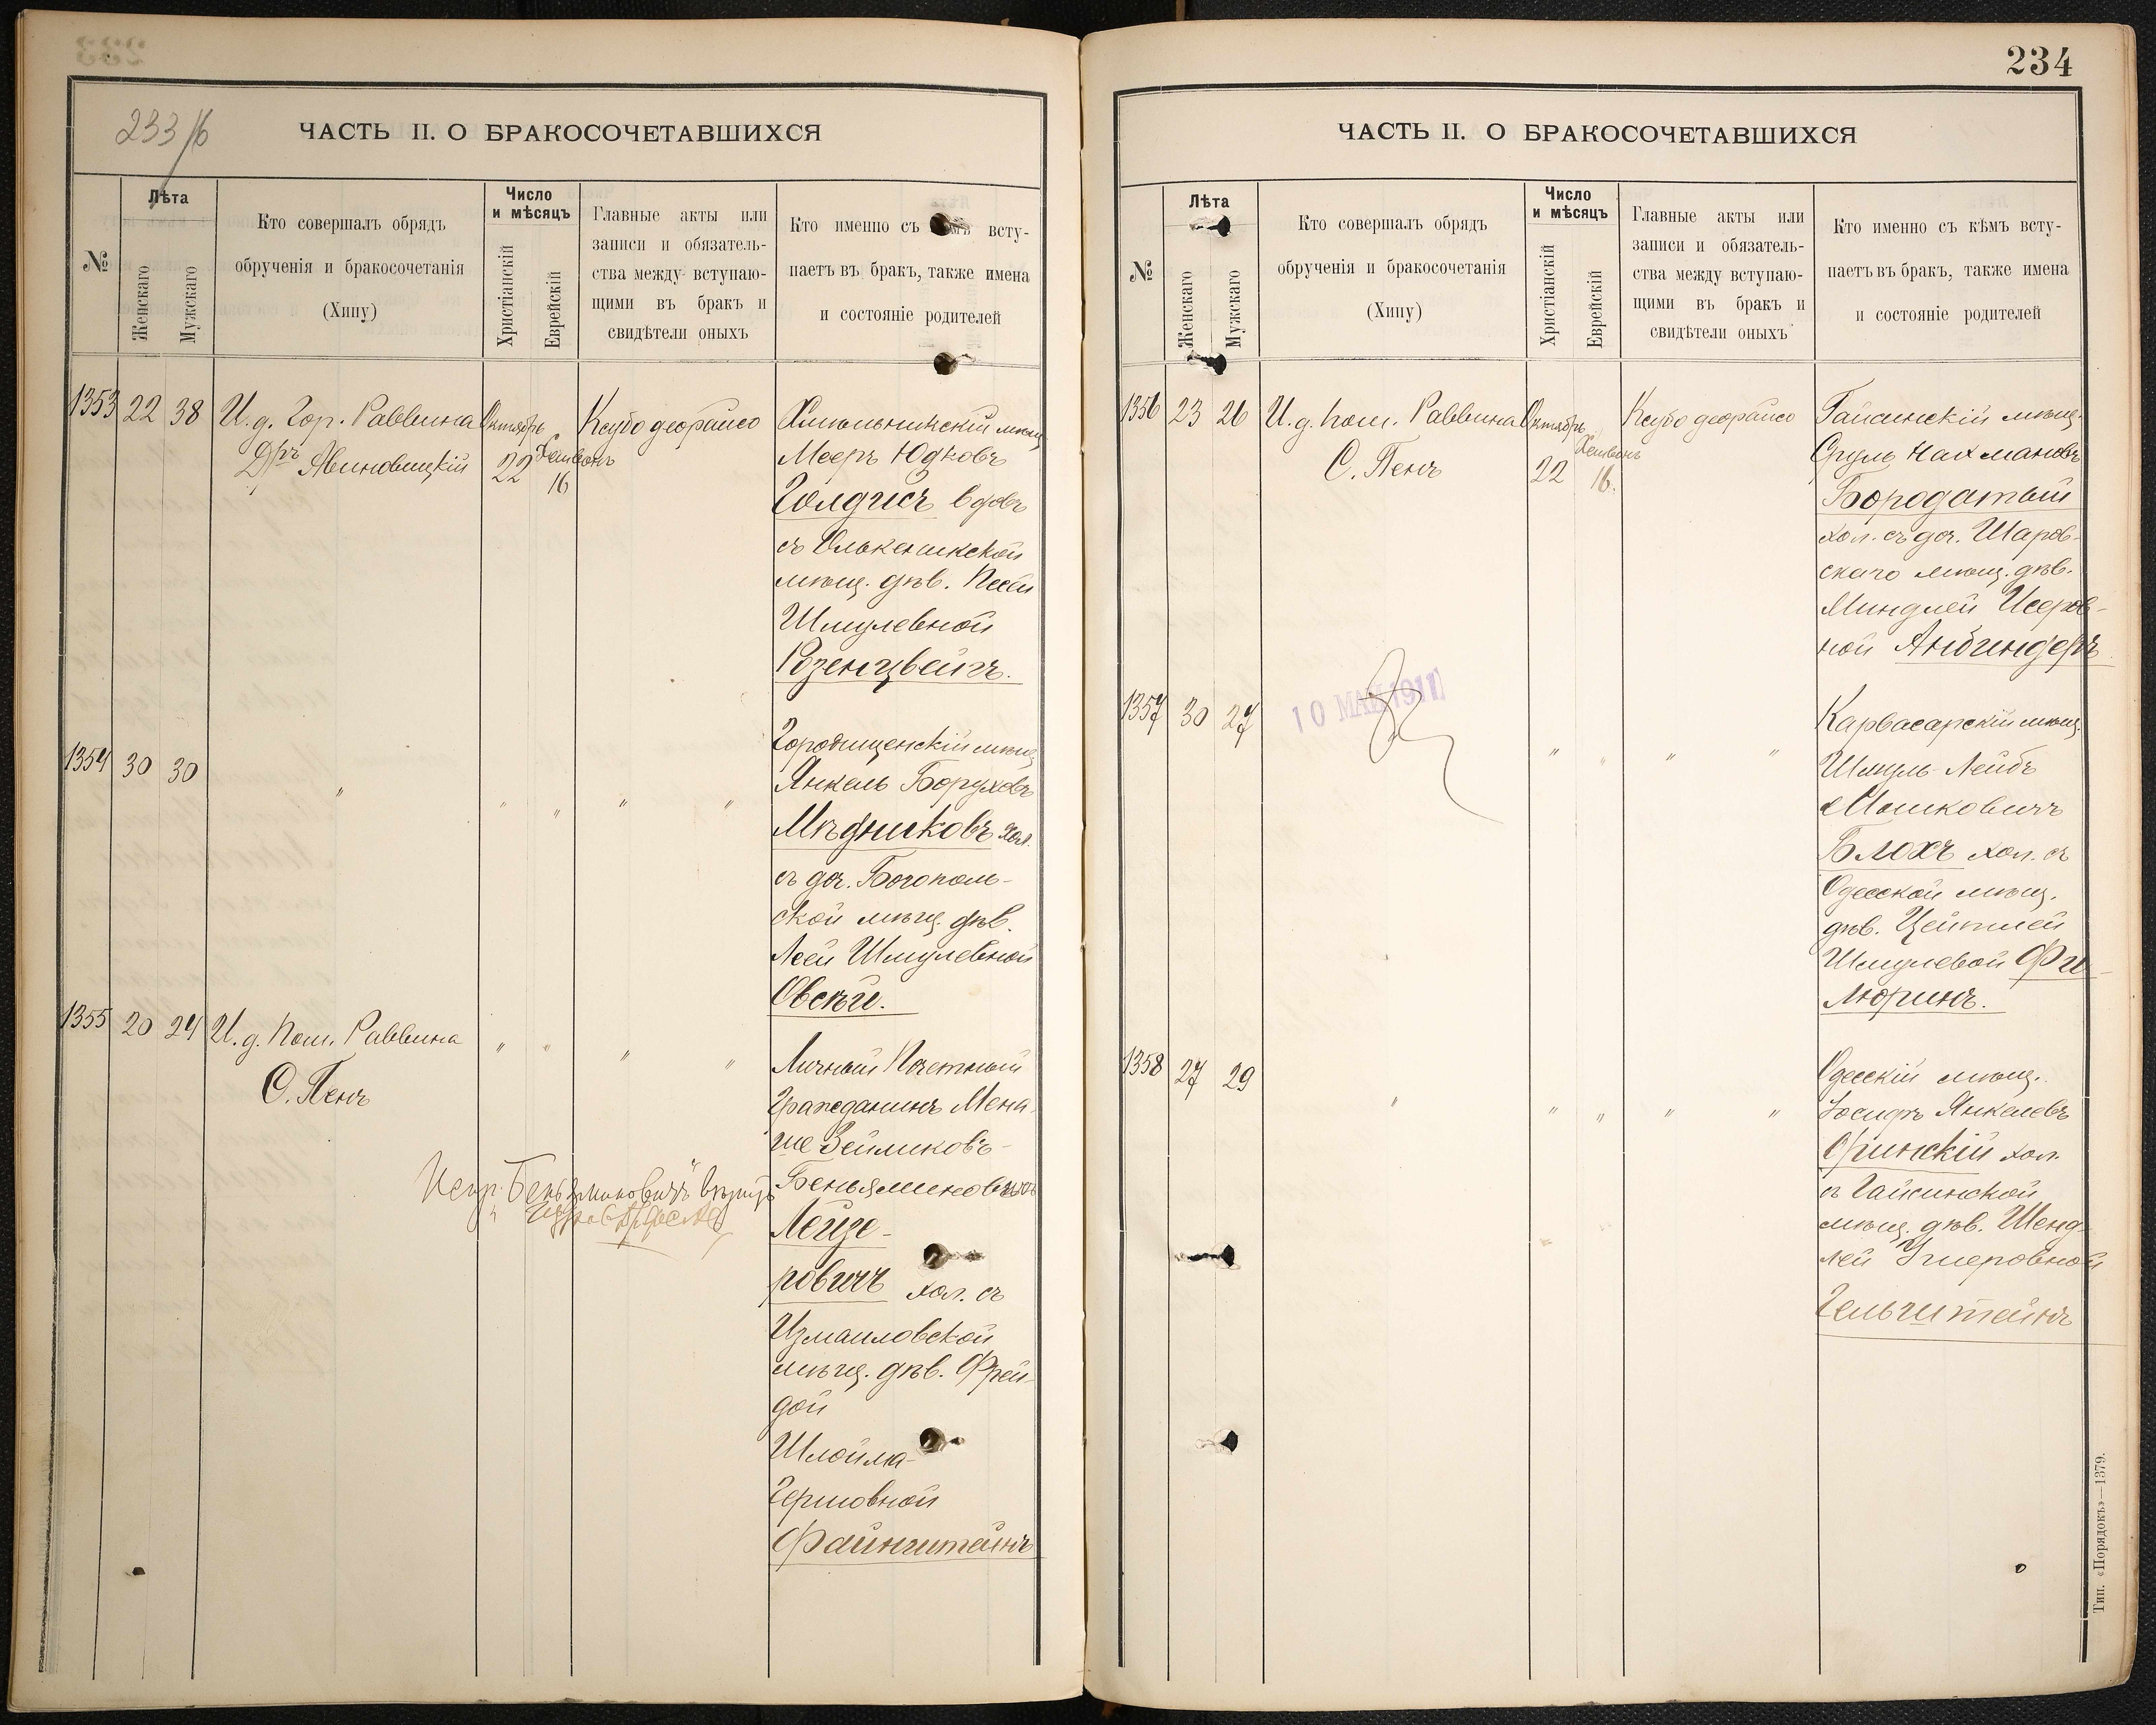 233/б
ЧАСТЬ II. О БРАКОСОЧЕТАВШИХСЯ
№
Лѣта
Женскаго
Мужскаго
Кто совершалъ обрядъ
обрученія и бракосочетанія
(Хипу)
Число
и мѣсяцъ
Христіанскій
Еврейскій
Главные акты или
записи и обязатель-
ства между вступаю-
щими въ бракъ и
свидѣтели оныхъ
Кто именно съ кѣмъ всту-
паетъ въ бракъ, также имена
и состояніе родителей
1353 22 38
И. д. Гор. Раввина
Дръ Явиновицкій
Октябрь
22
Хешвонъ
16
Ксубо деорайсо
Хмельникскій мѣщ.
Мееръ Юдковъ
Голдисъ вдовъ
съ Олькеникской
мѣщ. дѣв. Песи
Шмулевной
Розенцвейгъ.
1354 30 30
" " " " "
Городищенскій мѣщ.
Янкель Боруховъ
Мѣдниковъ хол.
съ доч. Богополь-
ской мѣщ. дѣв.
Леей Шмулевной
Овсѣй.
1355 20 24
И. д. Пом. Раввина
С. Пенъ
" " " "
Личный Почетный
Гражданинъ Мена-
ше Зейликовъ-
Беньяминовичъ
Лейзе-
ровичъ хол. съ
Измаиловской
мѣщ. дѣв. Фрей-
дой
Шлойма-
Гершовной
Файнштейнъ
Испр. "Беньяминовичъ" вѣрить
234
ЧАСТЬ II. О БРАКОСОЧЕТАВШИХСЯ
№
Лѣта
Женскаго
Мужскаго
Кто совершалъ обрядъ
обрученія и бракосочетанія
(Хипу)
Число
и мѣсяцъ
Христіанскій
Еврейскій
Главные акты или
записи и обязатель-
ства между вступаю-
щими въ бракъ и
свидѣтели оныхъ
Кто именно съ кѣмъ всту-
паетъ въ бракъ, также имена
и состояніе родителей
1356 23 26
И. д. Пом. Раввина
С. Пенъ
Октябрь
22
Хешвонъ
16.
Ксубо деорайсо
Гайсинскій мѣщ.
Сруль Нахмановъ
Бородатый
хол. съ доч. Шаров-
скаго мѣщ. дѣв.
Миндлей Исеров-
ной Анбиндеръ
1357 30 27
10 МАЙ 1911
" " " "
Карвасарскій мѣщ.
Шмуль-Лейбъ
Мошковичъ
Блохъ хол. съ
Одесской мѣщ.
дѣв. Цейтлей
Шмулевой Фи-
люринъ.
1358 27 29
" " " " "
Одесскій мѣщ.
Іосифъ Янкелевъ
Оринскій хол.
съ Гайсинской
мѣщ. дѣв. Шенд-
лей Ушеровной
Гельгштейнъ
Тип. «Порядокъ»—1379.